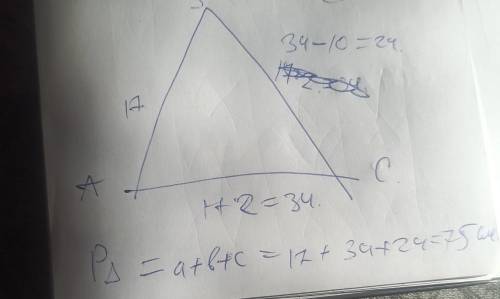 B
34-10=24.
17
A
C.
17·2=34.
P△ = a+b+c = 17 + 34+24=75 см.